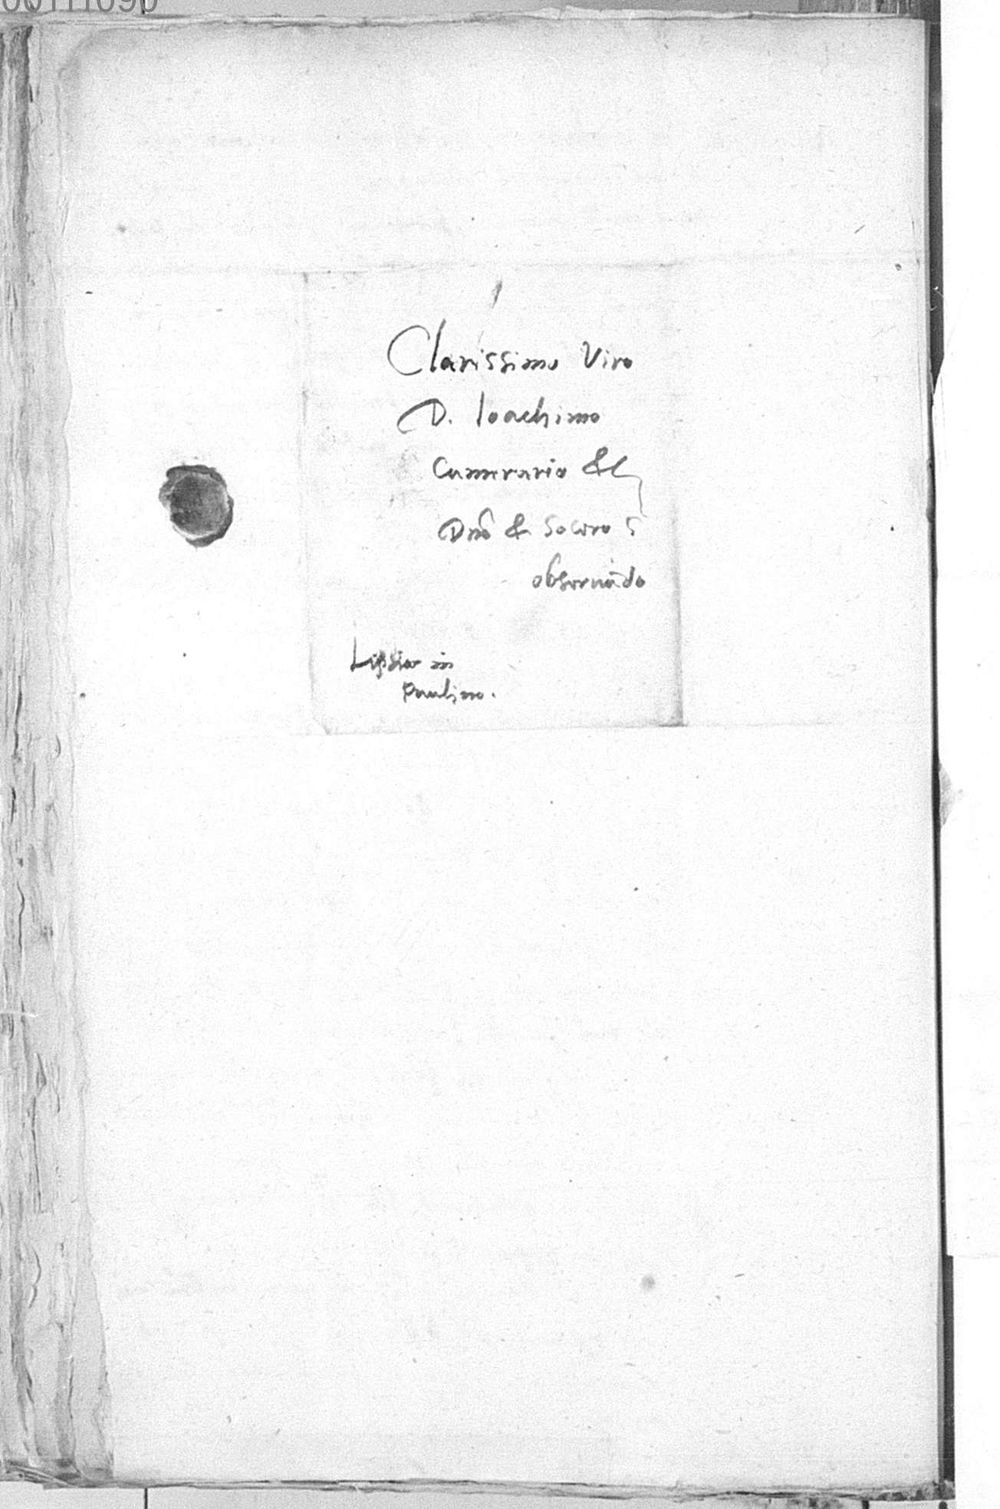 00111090
Clarissimo Viro
D. Ioachimo
Camerario &c
Dnō & Socero s
obseruādo
Lipsiae in
Paulino.